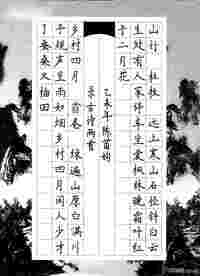 山行 杜牧 远上寒山石径斜白云
生处有人家停车坐爱枫林晚霜叶红
于二月花
乙未年 陈苗
录古诗两首
乡村四月 翁卷 绿遍山原白满川
子规声里雨如烟乡村四月闲人少才
了蚕桑又插田